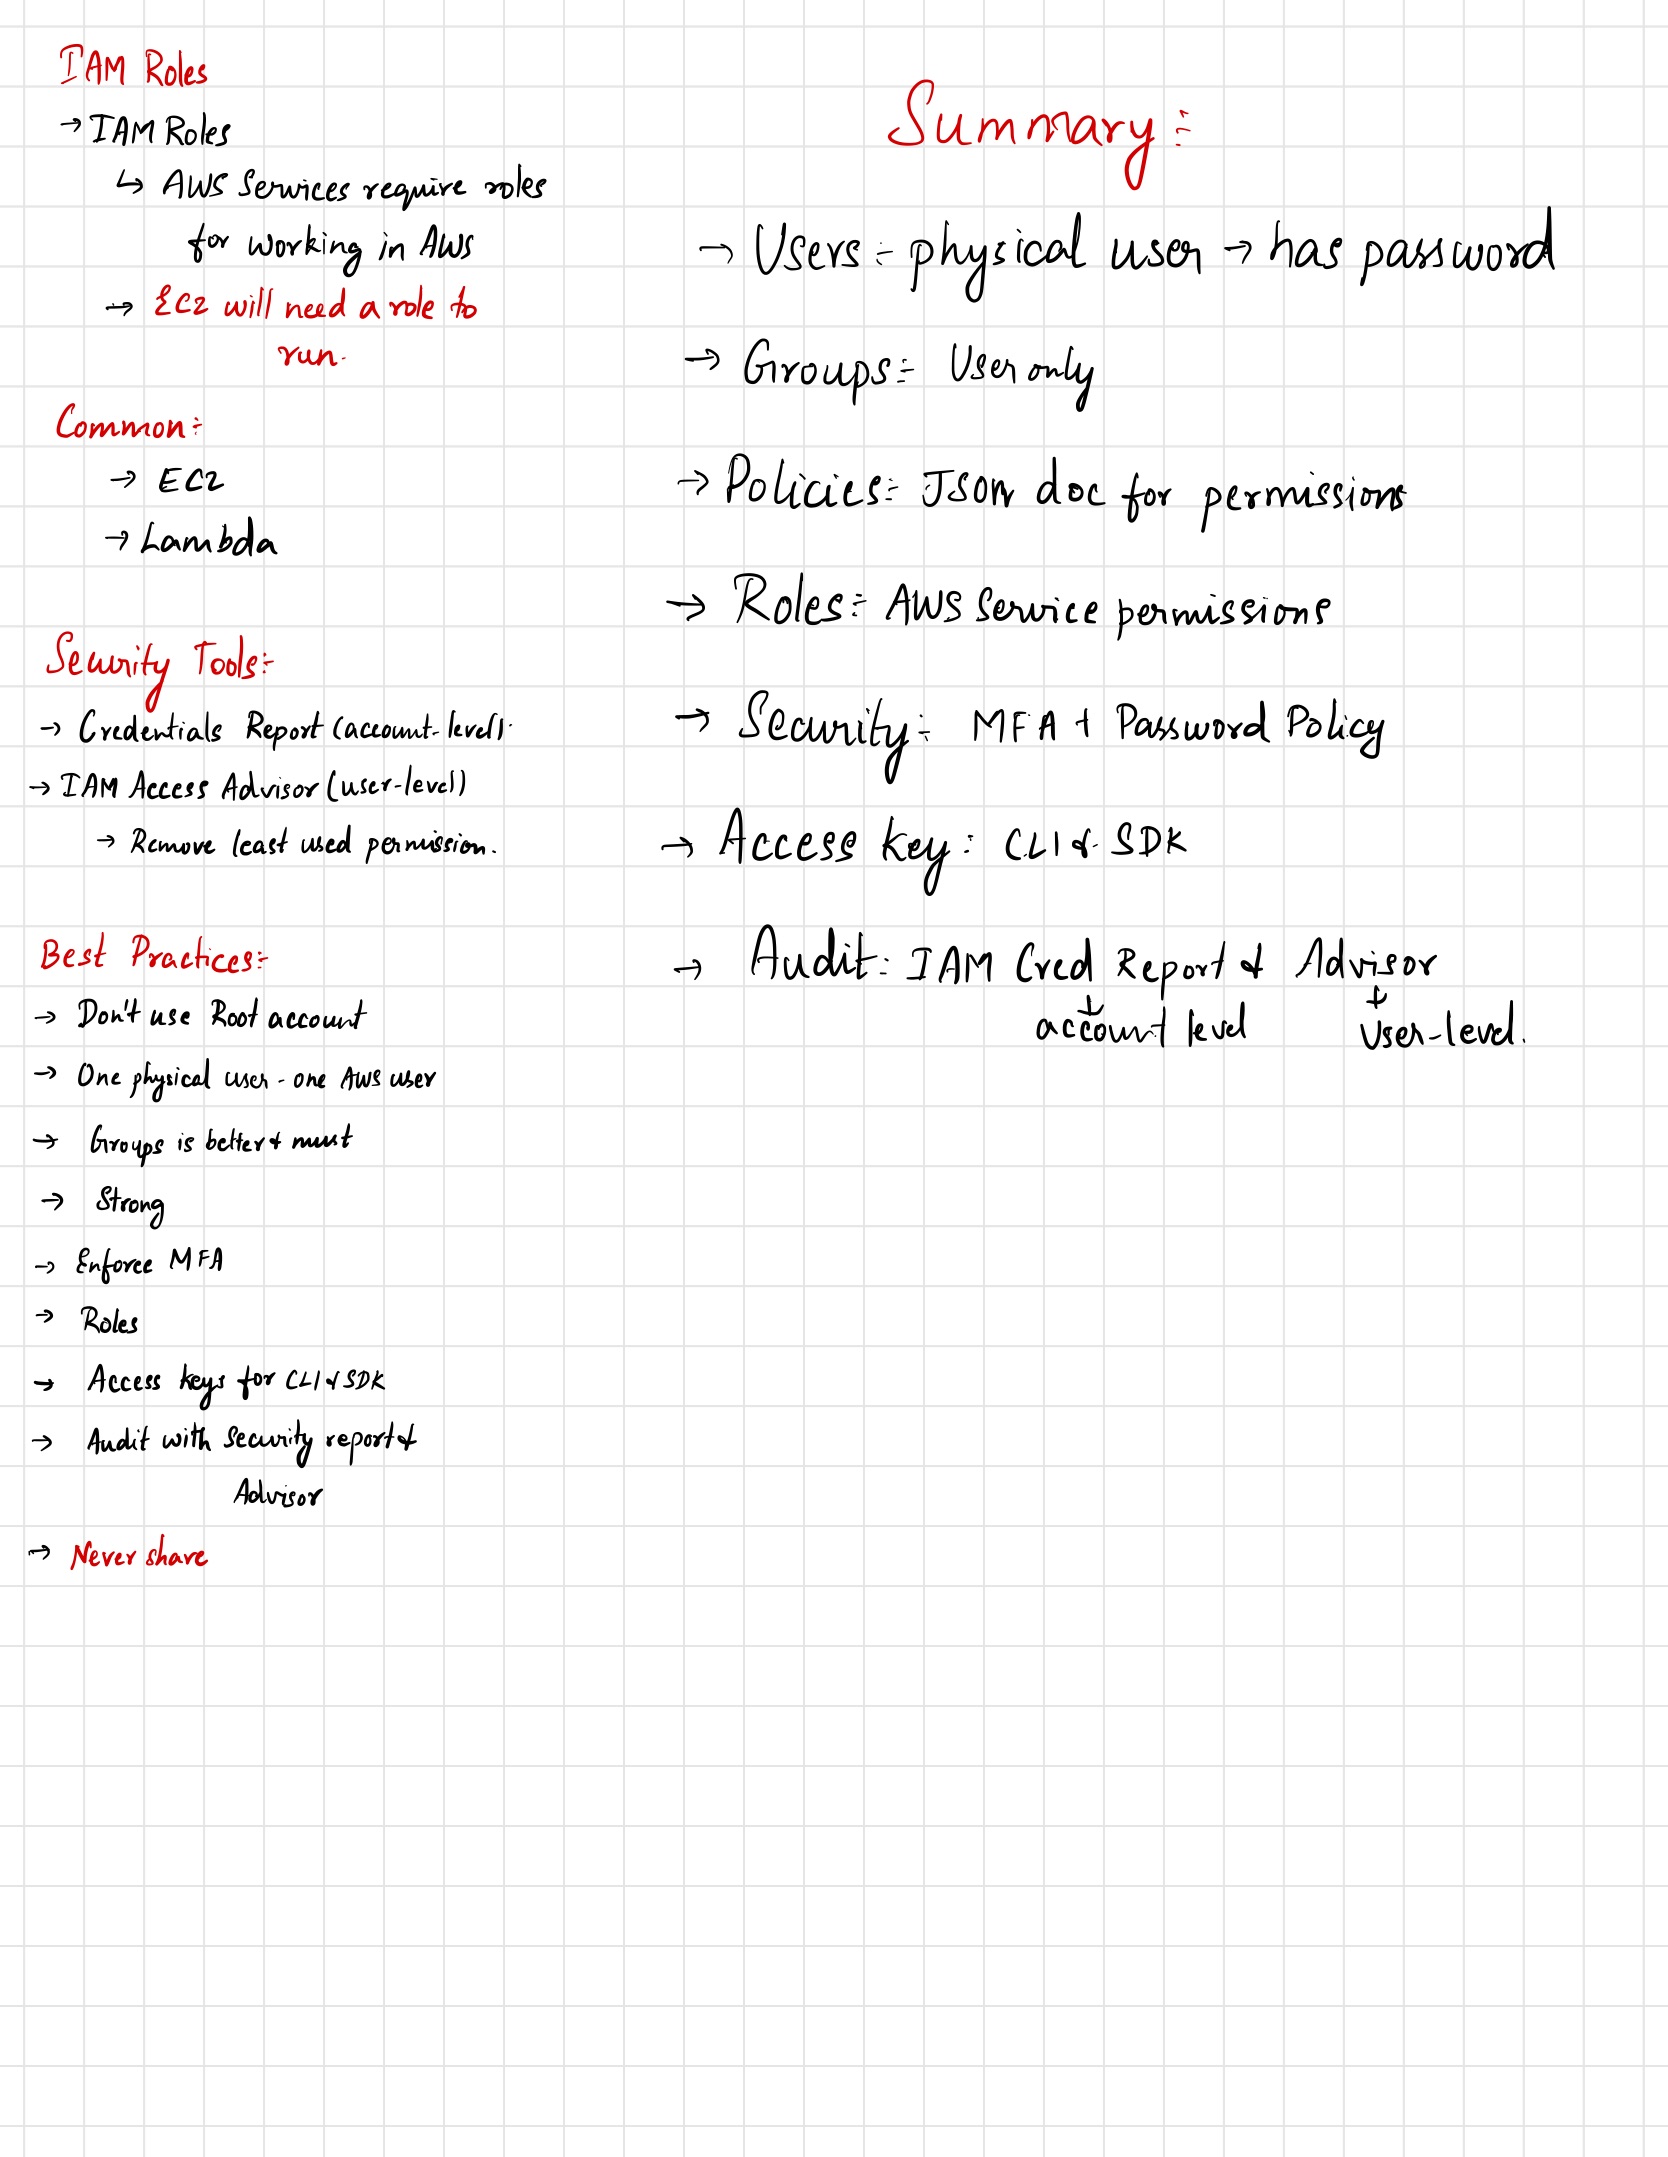 IAM Roles
→ IAM Roles
↳ AWS Services require roles
for working in AWS
→ EC2 will need a role to
run.
Common:-
→ EC2
→ Lambda
Security Tools:-
→ Credentials Report (account-level).
→ IAM Access Advisor (user-level)
→ Remove least used permission.
Best Practices:-
→ Don't use Root account
→ One physical user - one AWS user
→ Groups is better & must
→ Strong
→ Enforce MFA
→ Roles
→ Access keys for CLI & SDK
→ Audit with Security report &
Advisor
→ Never share
Summary:-
→ Users:- physical user → has password
→ Groups:- User only
→ Policies:- JSON doc for permissions
→ Roles:- AWS Service permissions
→ Security:- MFA + Password Policy
→ Access key: CLI & SDK
→ Audit: IAM Cred Report & Advisor
↓ ↓
account level User-level.